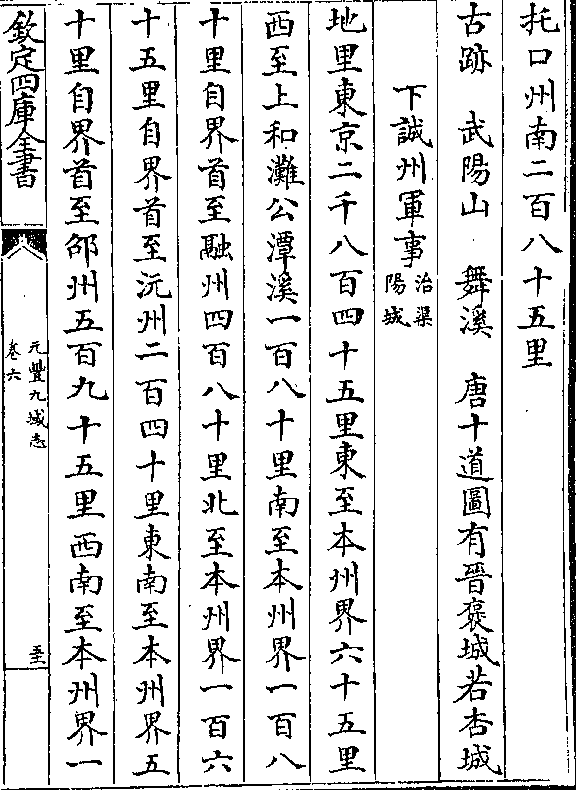 托口州南二百八十五里
古跡　武陽山　舞溪　唐十道圖有晉襃城若杏城
下誠州軍事治渠陽城
地里東京二千八百四十五里東至本州界六十五里
西至上和灘公潭溪一百八十里南至本州界一百八
十里自界首至融州四百八十里北至本州界一百六
十五里自界首至沅州二百四十里東南至本州界五
十里自界首至邵州五百九十五里西南至本州界一
欽定四庫全書
元豐九域志
卷六